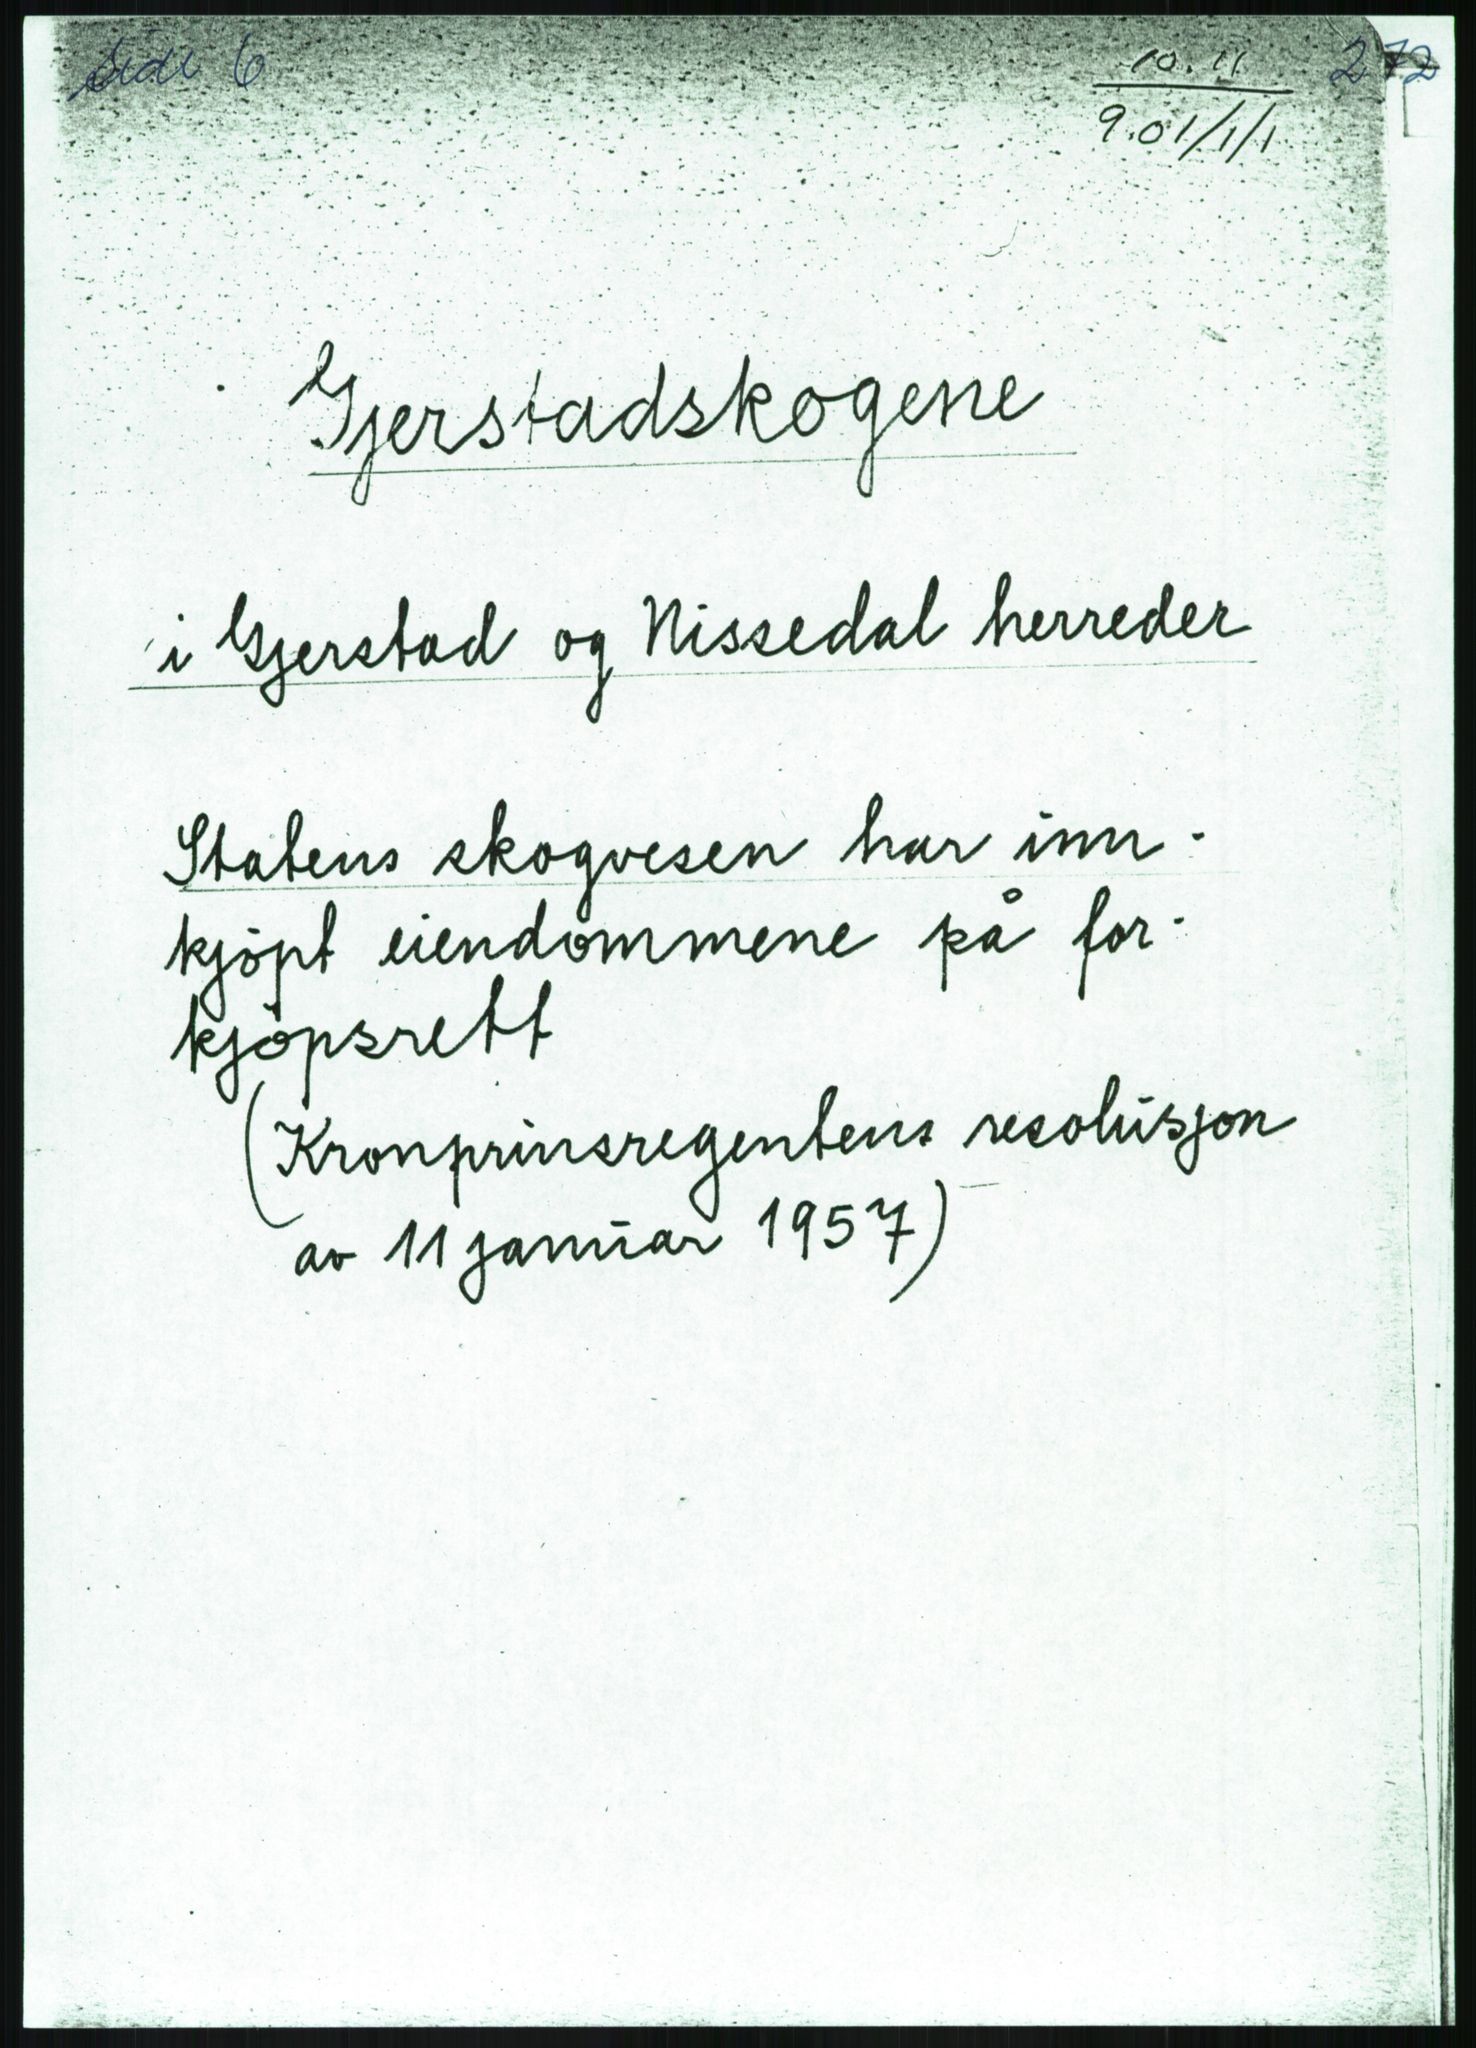 Side 6
10.11
272
9.01/1/1
Gjerstadskogene
i Gjerstad og Nissedal herreder
Statens skogvesen har inn-
kjöpt eiendommene på for-
kjöpsrett
(Kronprinsregentens resolusjon
av 11 januar 1957)